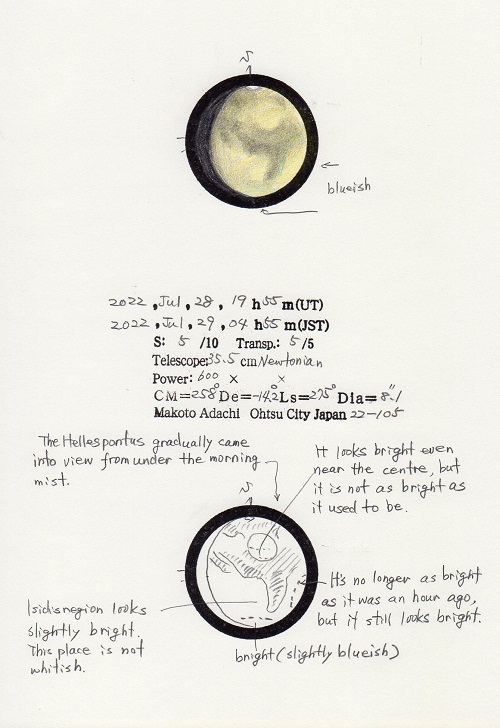 S
blueish
2022, Jul, 28, 19 h 55 m (UT)
2022, Jul, 29, 04 h 55 m (JST)
S: 5 /10 Transp.: 5 /5
Telescope: 35.5 cm Newtonian
Power: 600 × ×
CM=258° De=-14.2° Ls=275° Dia=8.1"
Makoto Adachi Ohtsu City Japan 22-105
The Hellespontus gradually came
into view from under the morning
mist.
It looks bright even
near the centre, but
it is not as bright as
it used to be.
S
It's no longer as bright
as it was an hour ago,
but it still looks bright.
Isidisregion looks
slightly bright.
This place is not
whitish.
bright (slightly blueish)